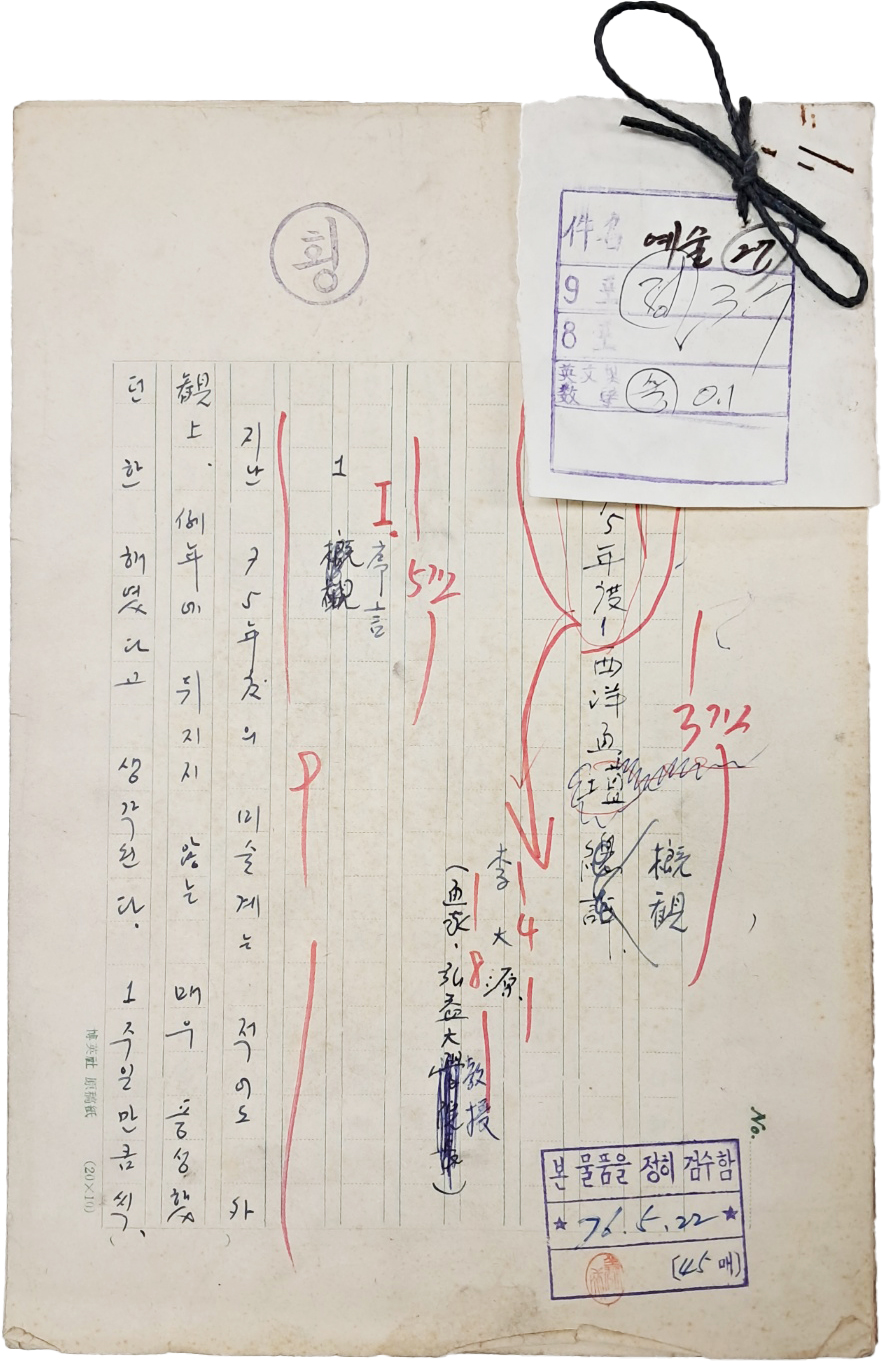 횡
件名 예술 27
9 포 3.7
8 포
英文 數字 0.1
75年度 西洋画 概観
3행
李大源
4
(画家·弘益大 敎授)
8
5행
I. 序言
1
지난 75年度의 미술계는 적어도 外
観上. 例年에 뒤지지 않는 매우 풍성했
던 한 해였다고 생각된다. 1주일만큼씩,
博英社 原稿紙 (20×10)
No.
본 물품을 정히 검수함
★ 76. 5. 22 ★
(45매)